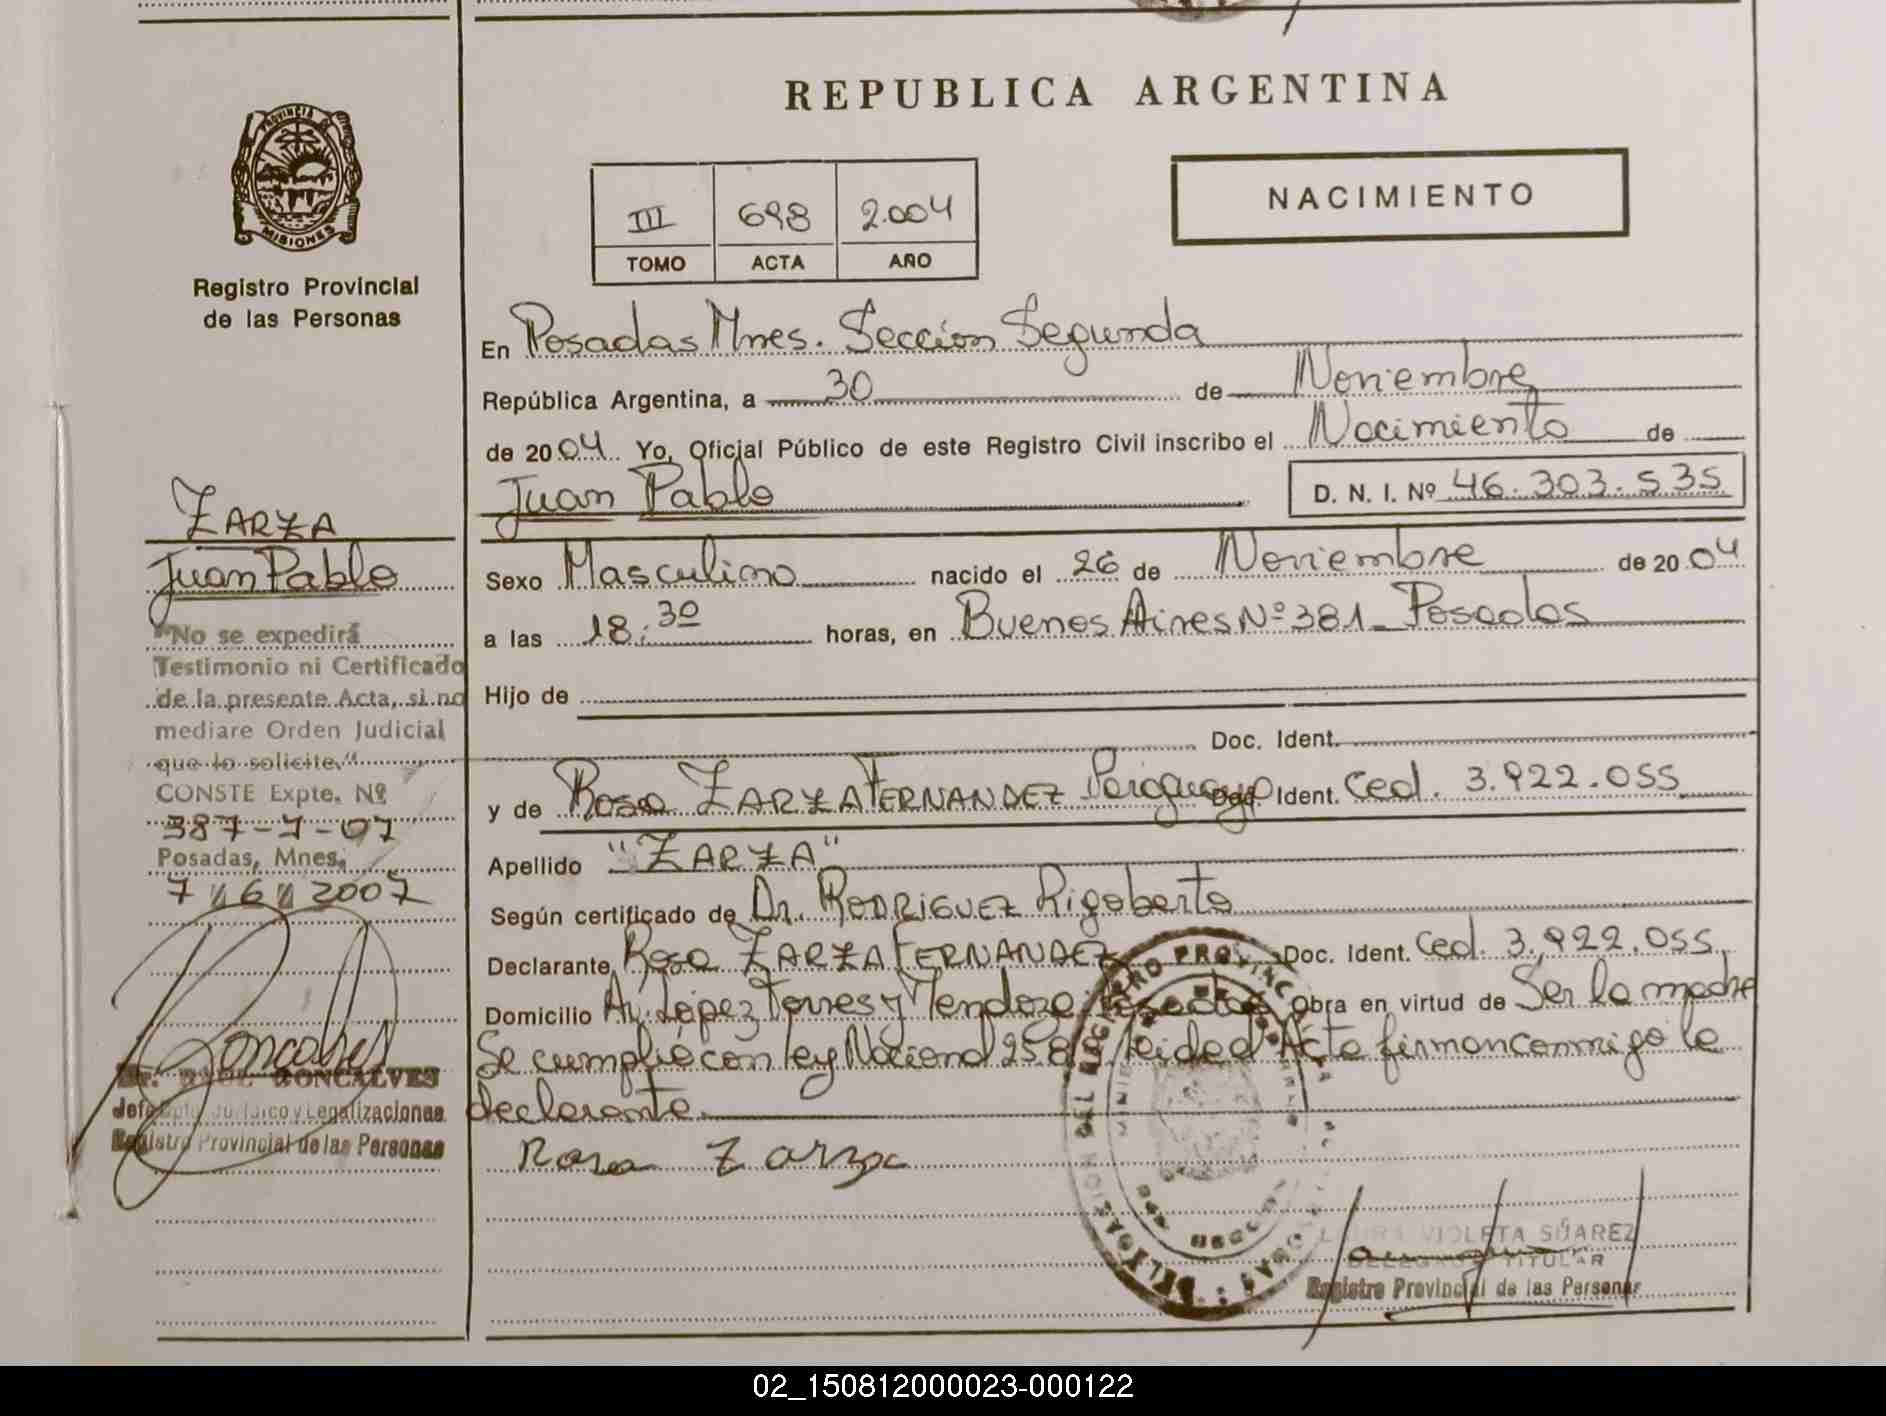 REPUBLICA ARGENTINA
PROVINCIA DE
MISIONES
Registro Provincial
de las Personas
III 698 2.004
TOMO ACTA AÑO
NACIMIENTO
En Posadas Mnes. Sección Segunda
República Argentina, a 30 de Noviembre
de 2004 Yo, Oficial Público de este Registro Civil inscribo el Nacimiento de
Juan Pablo D. N. I. Nº 46.303.535
Sexo Masculino nacido el 26 de Noviembre de 2004
a las 18:30 horas, en Buenos Aires Nº 381 Posadas
Hijo de
Doc. Ident.
y de Rosa ZARZA FERNANDEZ Paraguaya Doc. Ident. Ced. 3.922.055
Apellido "ZARZA"
Según certificado de Dr. RODRIGUEZ Rigoberto
Declarante Rosa ZARZA FERNANDEZ Doc. Ident. Ced. 3.922.055
Domicilio Av. López Torres y Mendoza Posadas Obra en virtud de Ser la madre
Se cumplió con ley Nacional Leida el Acta firman conmigo la
declarante.
Rosa Zarza
ZARZA
Juan Pablo
"No se expedirá
Testimonio ni Certificado
de la presente Acta, si no
mediare Orden Judicial
que lo solicite."
CONSTE Expte. Nº
387-7-07
Posadas, Mnes.
7/6/2007
Goncalves
Dr. RAUL GONCALVES
Jefe Dpto. Jurídico y Legalizaciones
Registro Provincial de las Personas
LAURA VIOLETA SUAREZ
DELEGADA TITULAR
Registro Provincial de las Personas
02_150812000023-000122